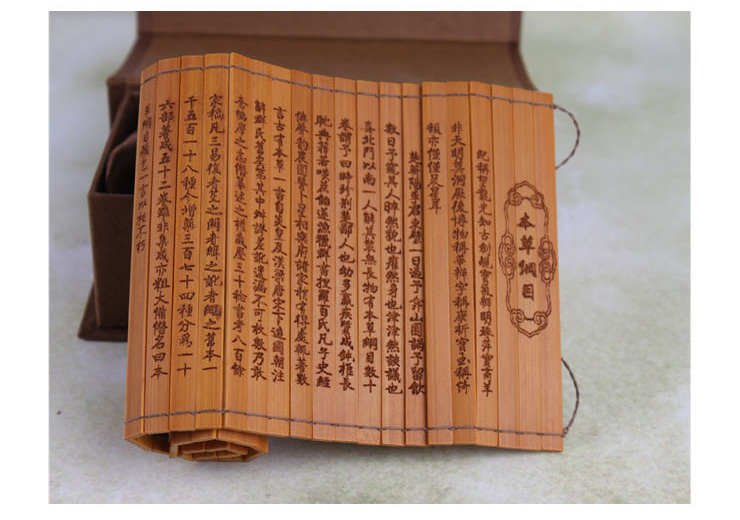 本草綱目
紀稱望龍光知古劍覘寶氣辨明珠萍實商羊
非天明莫洞厥後博物稱華辨字稱康析寶玉稱倚
頓亦僅僅晨星耳
楚蘄陽李君東璧一日過予弇山園謁予留飲
數日予窺其人睟然貌也癯然身也津津然談議也
真北斗以南一人解其裝無長物有本草綱目數十
卷謂予曰時珍荊楚鄙人也幼多羸疾質成鈍椎長
耽典籍若啖蔗飴遂漁獵群書搜羅百氏凡子史經
傳聲韵農圃醫卜星相樂府諸家稍有得處輒著數
言古有本草一書自炎皇及漢梁唐宋下迨國朝注
解群氏舊矣第其中舛謬差訛遺漏不可枚數乃敢
奮編摩之志僭纂述之權歲歷三十稔書考八百餘
家稿凡三易復者芟之闕者緝之訛者繩之舊本一
千五百一十八種今增藥三百七十四種分爲一十
六部著成五十二卷雖非集成亦粗大備僭名曰本
草綱目願乞一言以托不朽